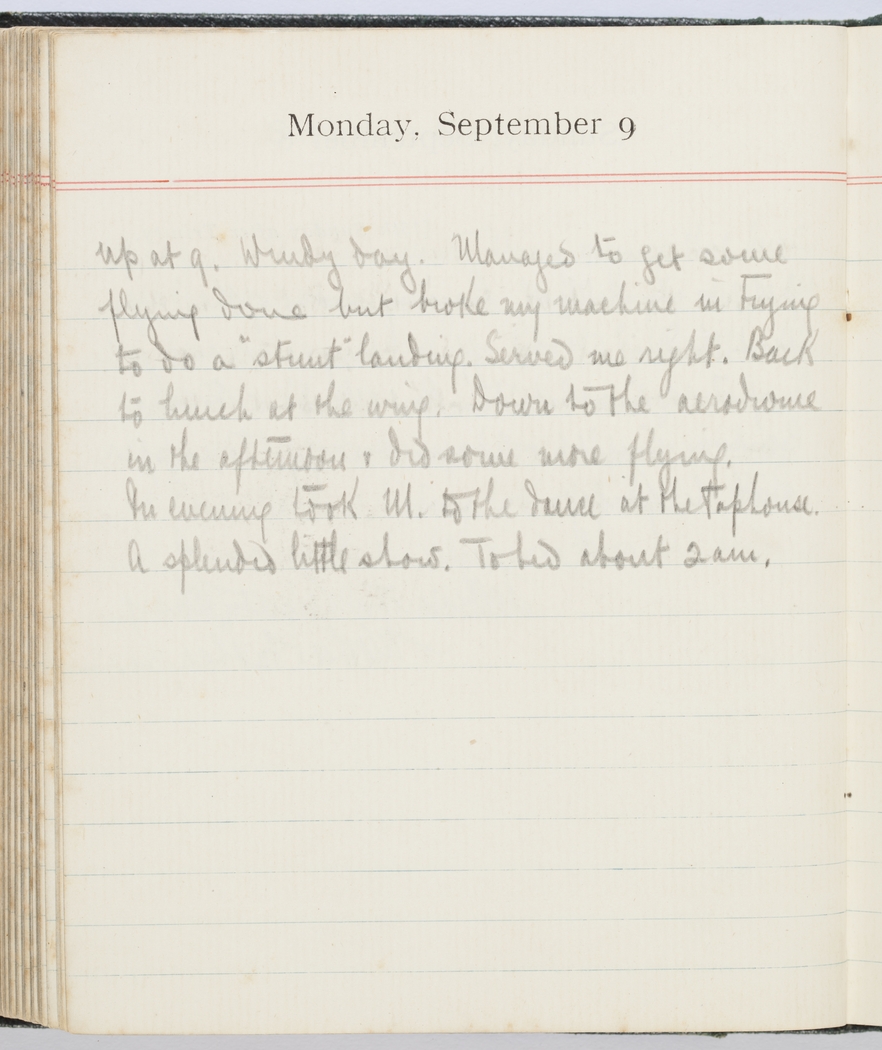 Monday, September 9
Up at 9. Windy day. Managed to get some
flying done but broke my machine in trying
to do a "stunt" landing. Served me right. Back
to lunch at the wing. Down to the aerodrome
in the afternoon & did some more flying.
In evening took M. to the dance at the Taphouse.
A splendid little show. To bed about 2 am.